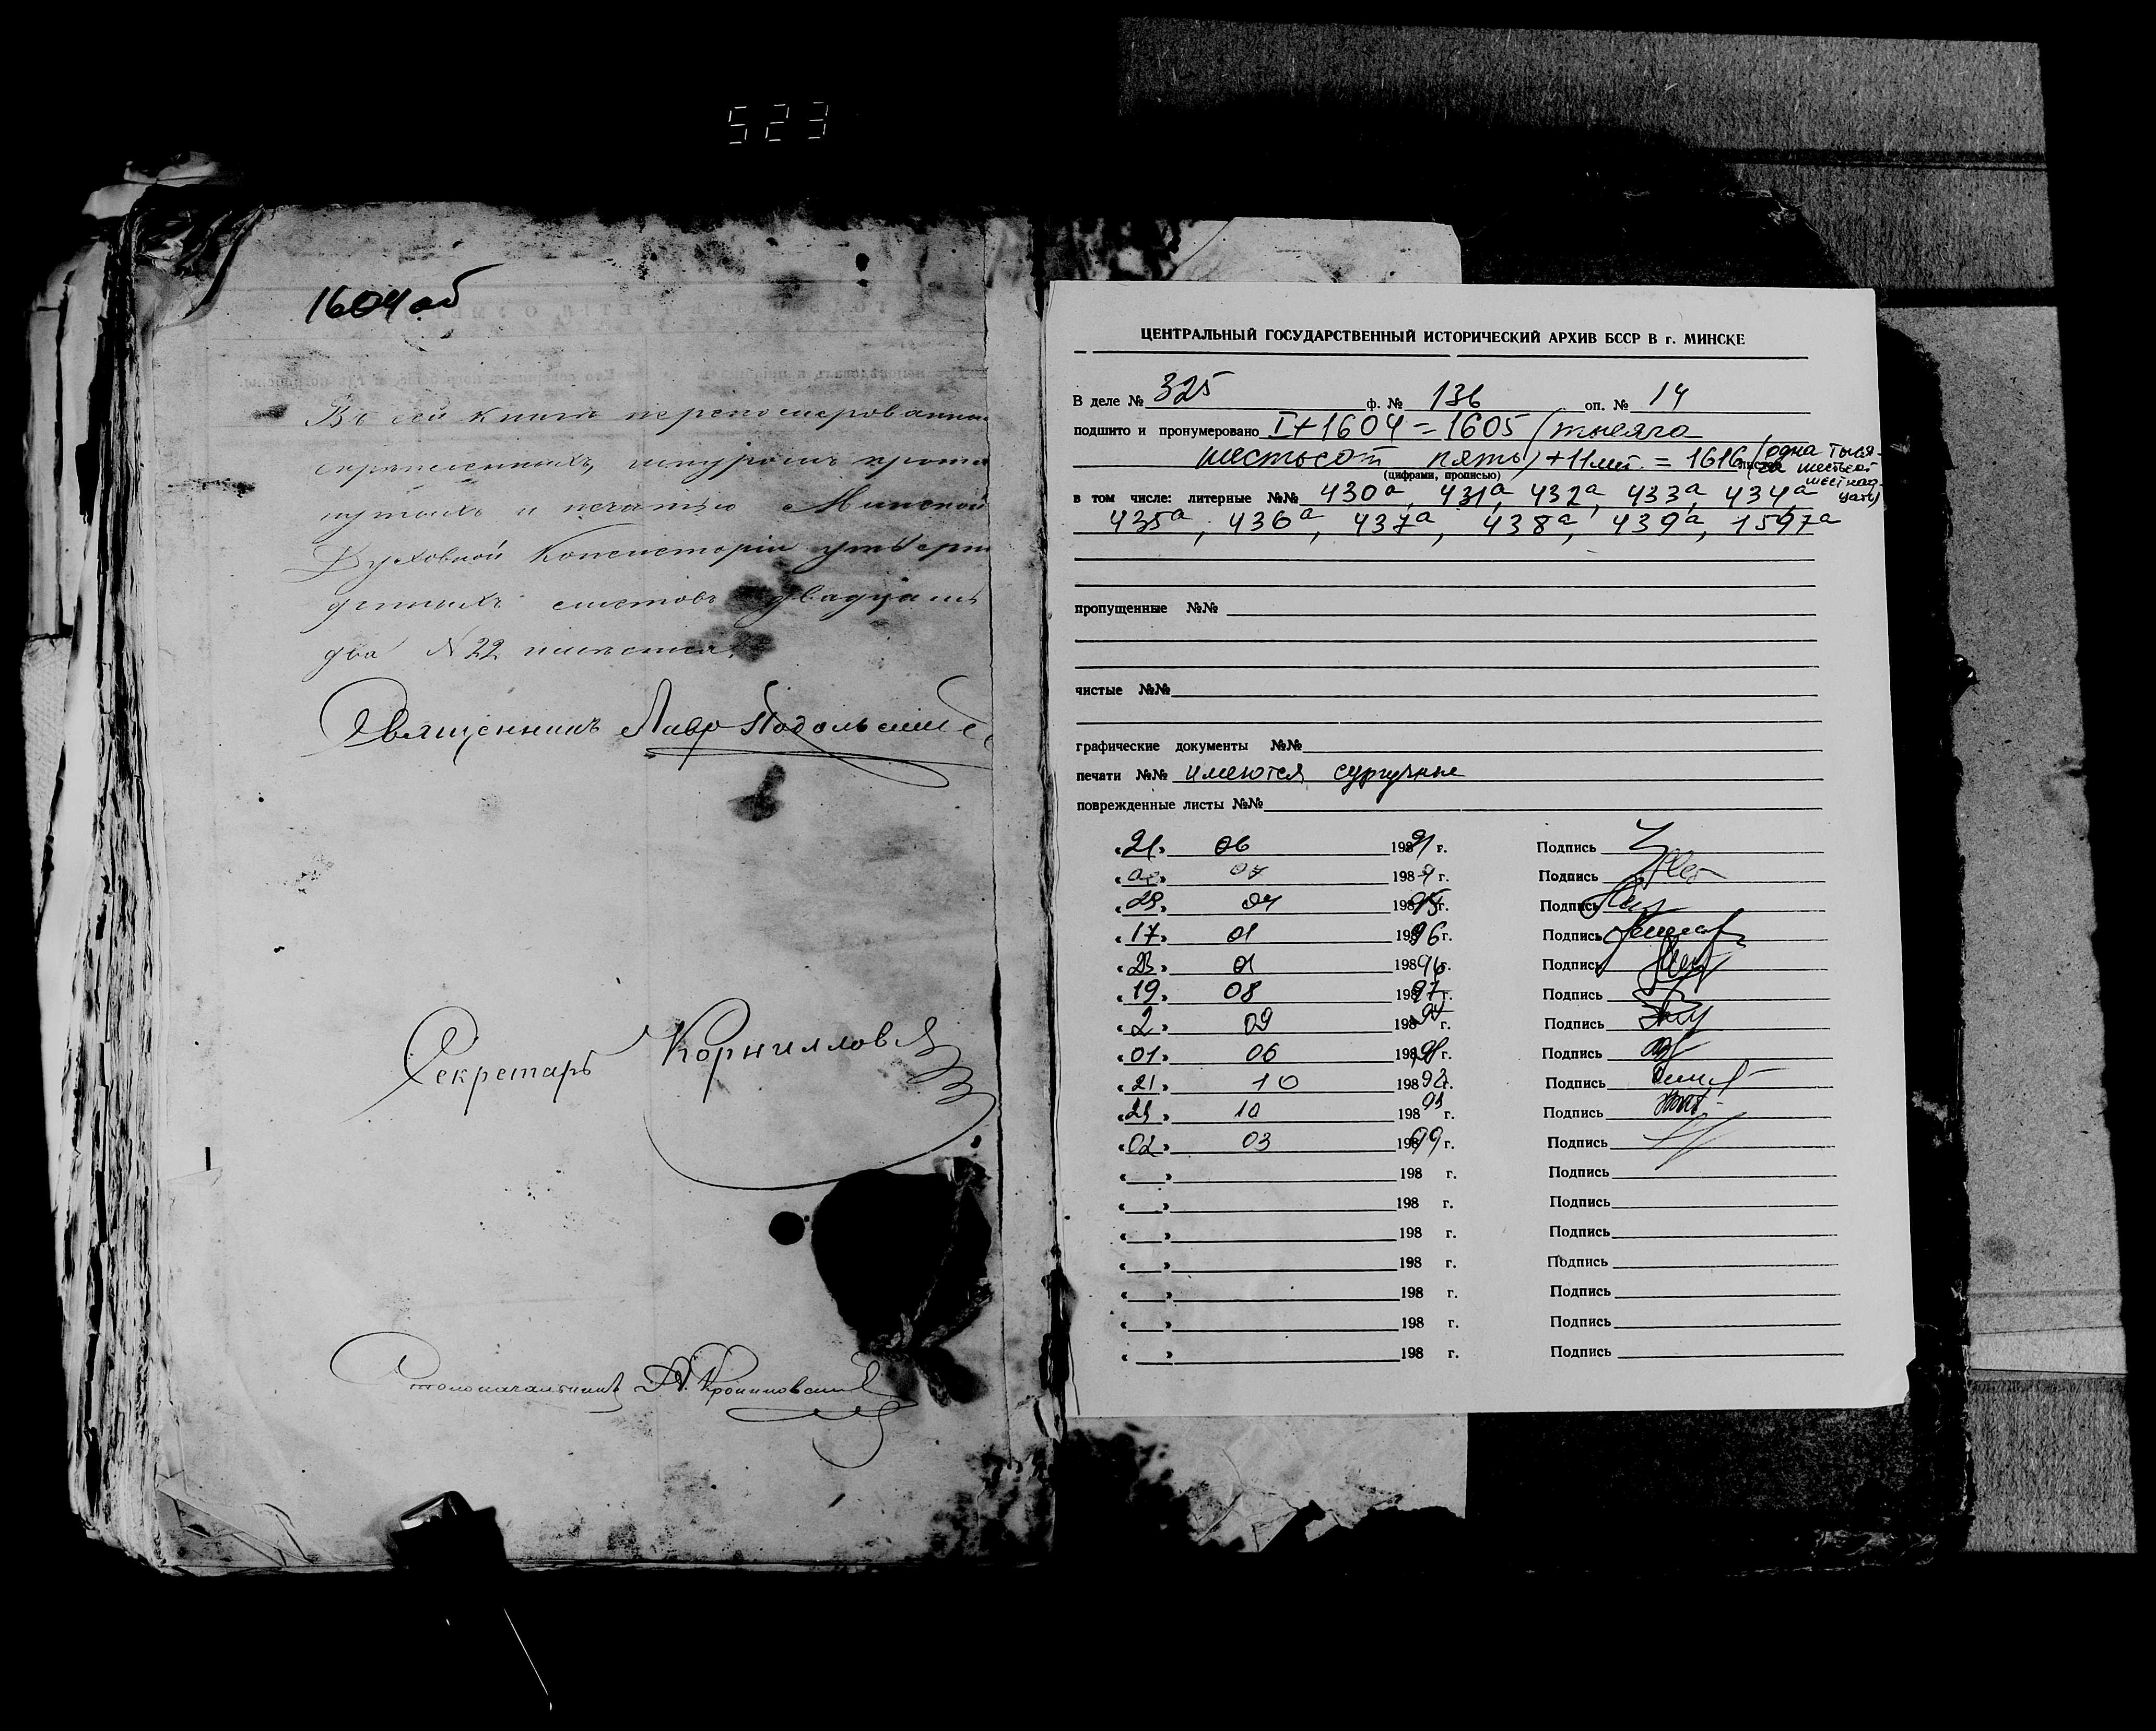 523
1604 об
Въ сей книгѣ перенумерованныхъ
скрѣпленныхъ, шнуромъ протя
нутыхъ и печатью Минской
Духовной Консисторіи утверж
денныхъ листовъ двадцать
два № 22
Священникъ Лавр Подольскій
Секретарь Корнилловъ
Столоначальникъ
ЦЕНТРАЛЬНЫЙ ГОСУДАРСТВЕННЫЙ ИСТОРИЧЕСКИЙ АРХИВ БССР В г. МИНСКЕ
В деле № 325 ф. № 136 оп. № 14
подшито и пронумеровано I+1604=1605 /тысяча
шестьсот пять/ +11 лит. = 1616 листов /одна тыся-
ча шестьсот
шестнад-
цать/
(цифрами, прописью)
в том числе: литерные №№ 430а, 431а, 432а, 433а, 434а
435а, 436а, 437а, 438а, 439а, 1597а
пропущенные №№
чистые №№
графические документы №№
печати №№ имеются сургучные
поврежденные листы №№
«21» 06 1991 г. Подпись
07 198 г. Подпись
04 1995 г. Подпись
«17» 01 1996 г. Подпись
«23» 01 19896 г. Подпись
«19» 08 1997 г. Подпись
«2» 09 198 г. Подпись
«01» 06 1998 г. Подпись
«21» 10 198 г. Подпись
10 198 г. Подпись
«02» 03 1999 г. Подпись
« » 198 г. Подпись
« » 198 г. Подпись
« » 198 г. Подпись
« » 198 г. Подпись
« » 198 г. Подпись
« » 198 г. Подпись
« » 198 г. Подпись